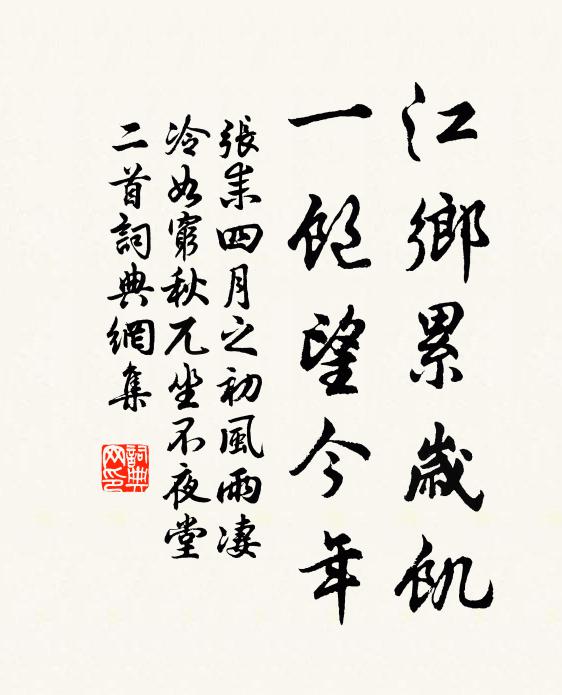 江鄉累歲飢
一飽望今年
張耒四月之初風雨淒
冷如窮秋兀坐不夜堂
二首詞典網集
詞典网印